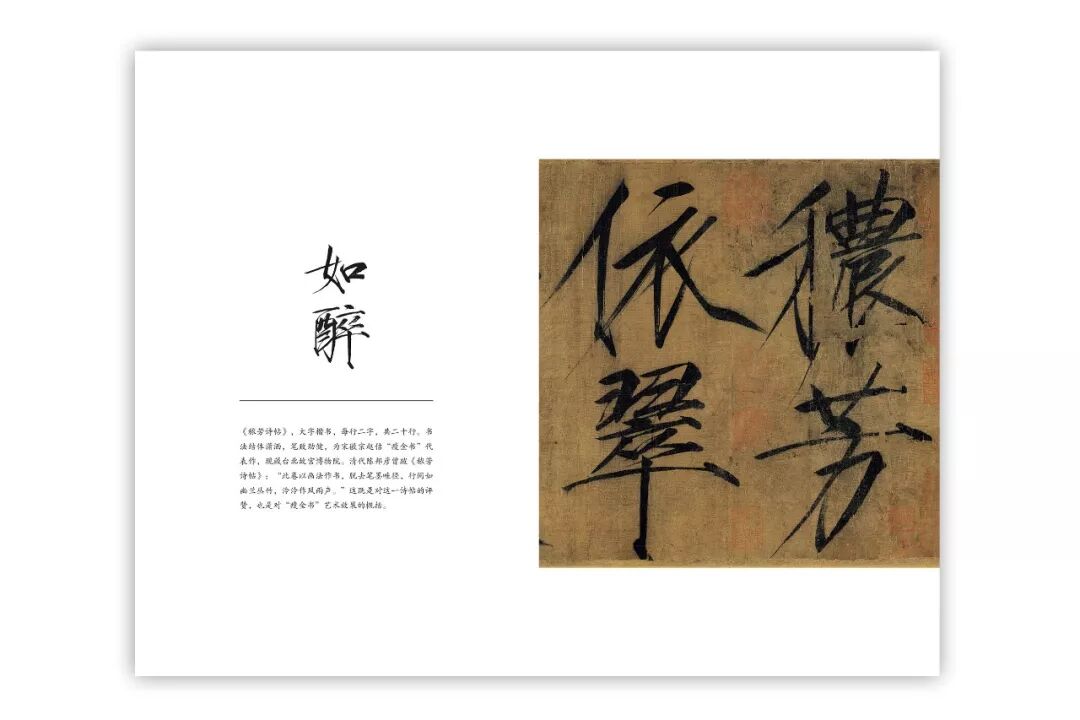 如醉
《秾芳诗帖》，大字楷书，每行二字，共二十行。书
法结体潇洒，笔致劲健，为宋徽宗赵佶“瘦金书”代
表作，现藏台北故宫博物院。清代陈邦彦曾跋《秾芳
诗帖》：“此卷以画法作书，脱去笔墨畦径，行间如
幽兰丛竹，泠泠作风雨声。”这既是对这一诗帖的评
赞，也是对“瘦金书”艺术效果的概括。
穠芳
依翠